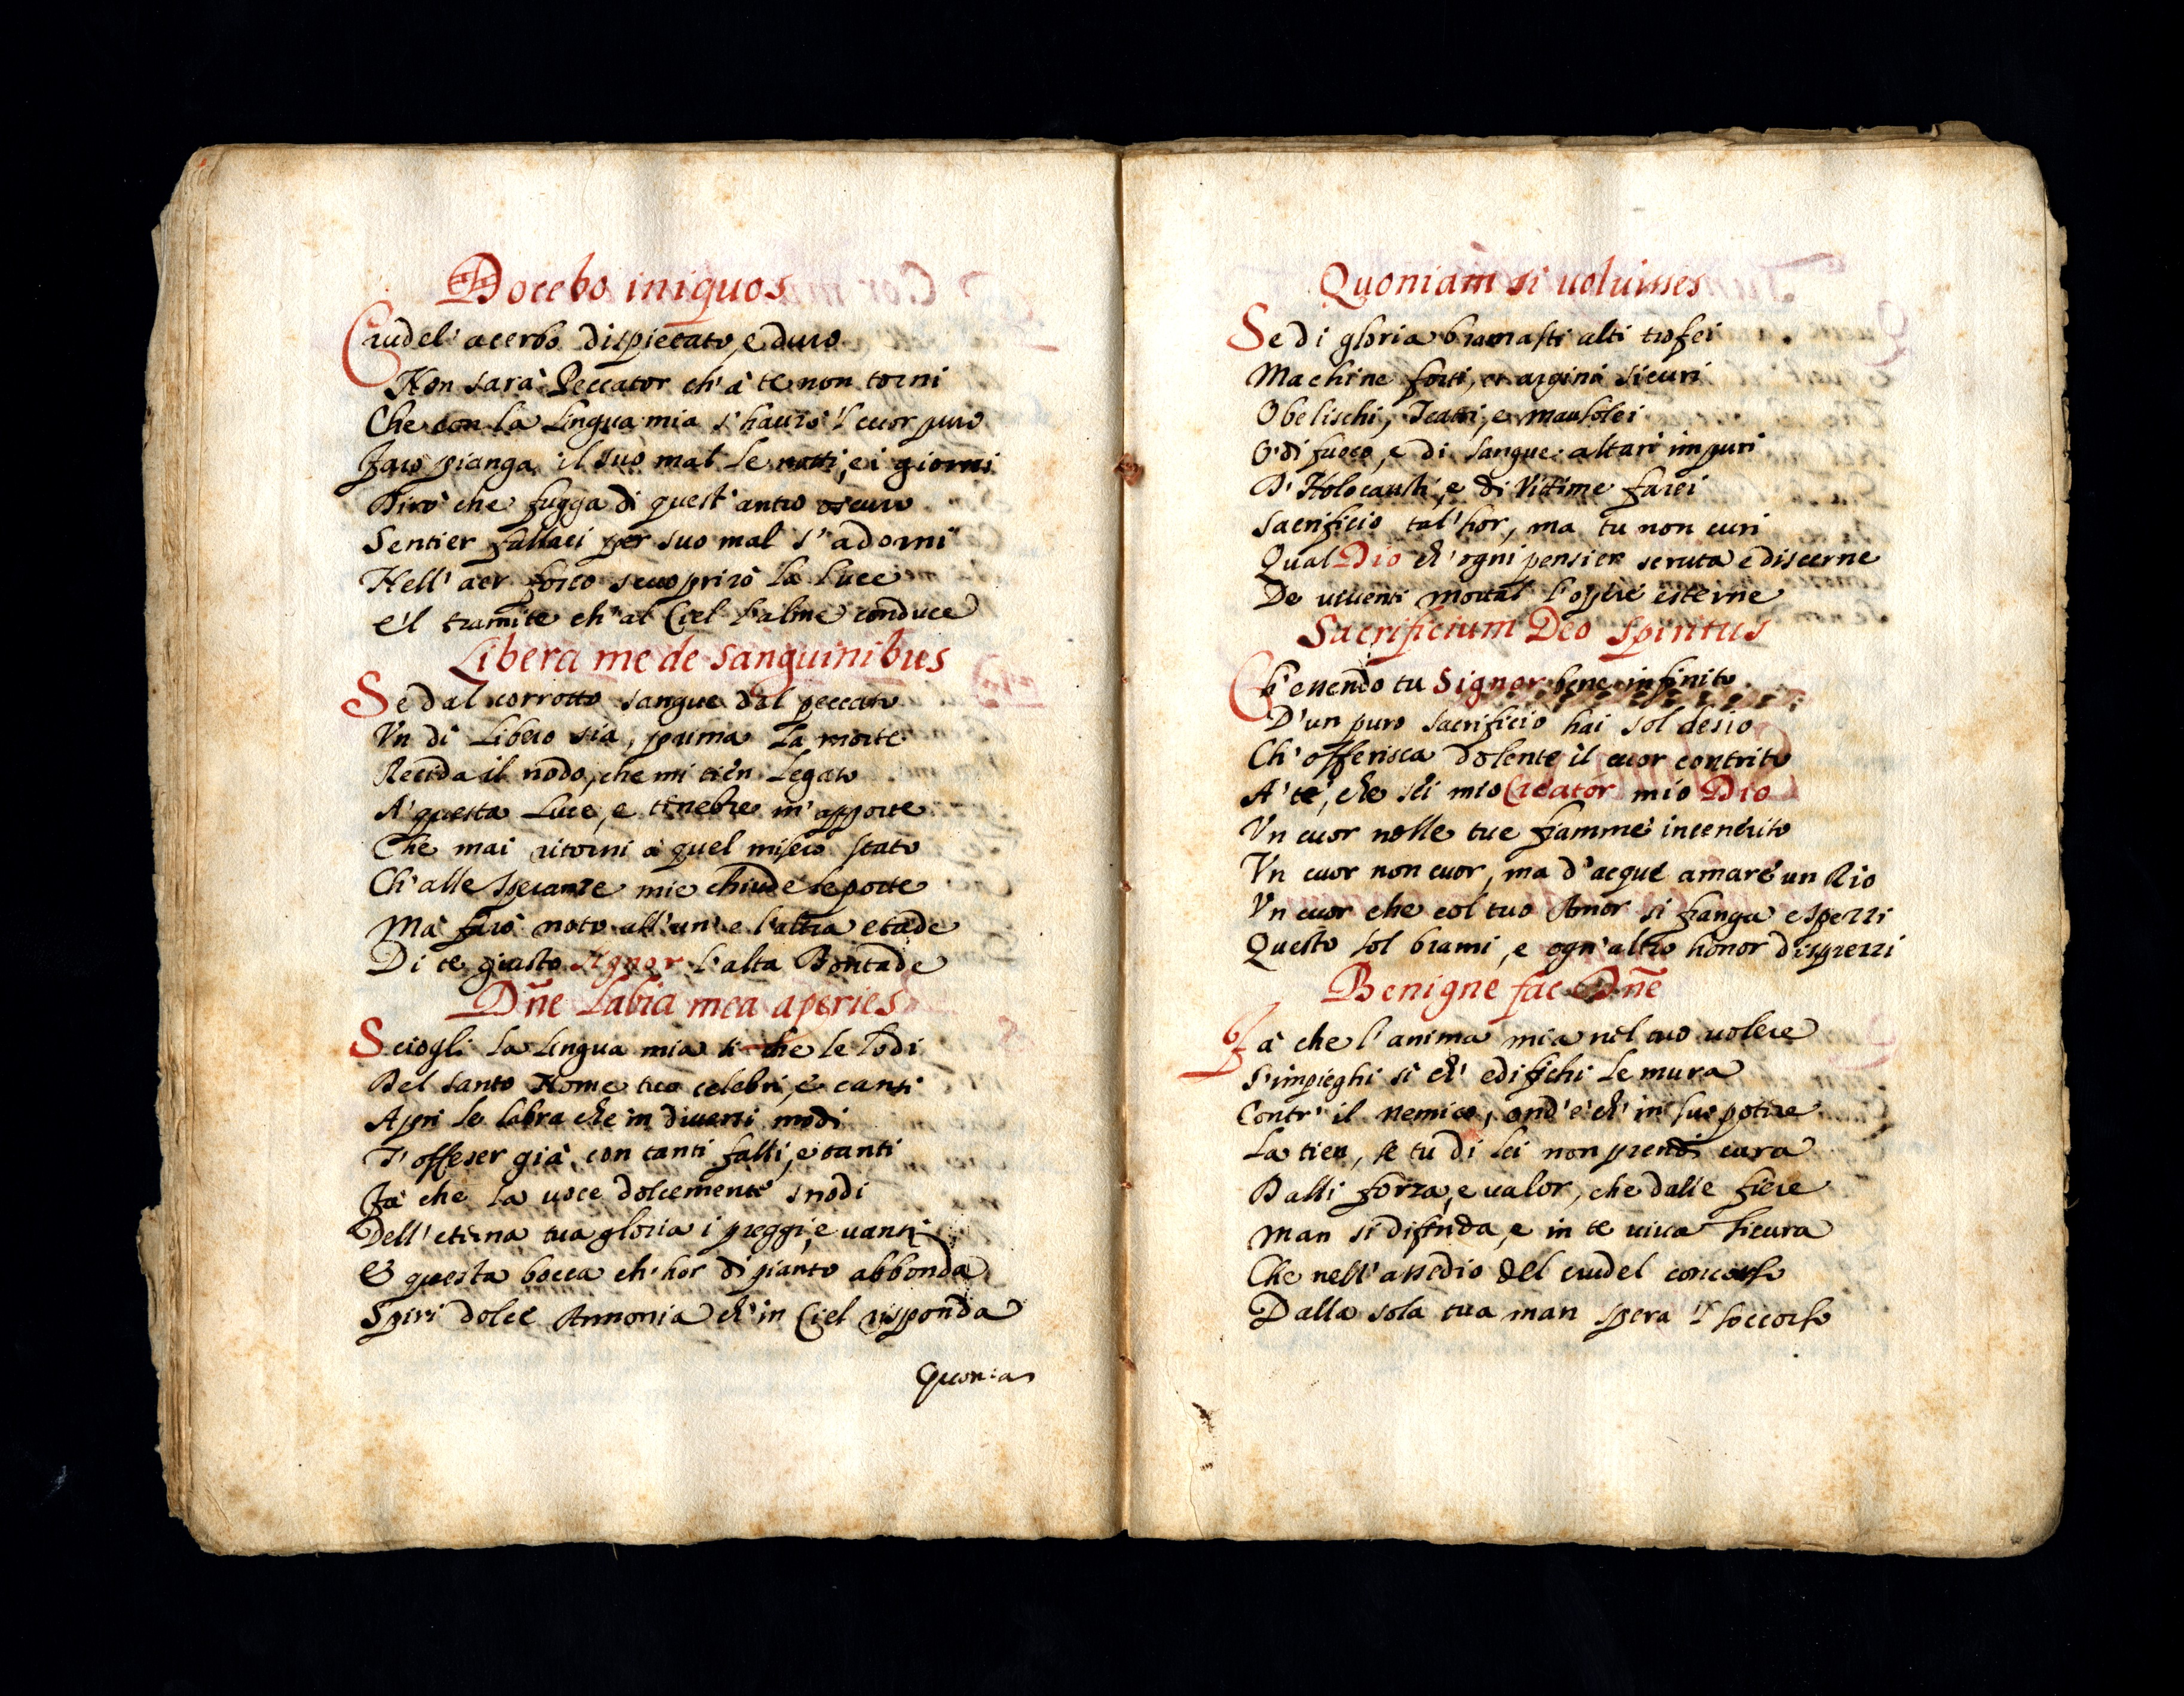 Docebo iniquos
Crudel' acerbo dispiettato, e duro
Non sarà Peccator ch'à te non torni
Che con la lingua mia s'haurò 'l cuor puro
Farò pianga il suo mal le notti, e i giorni
Dirò che fugga di quest'antro oscuro
Sentier fallaci per suo mal s'adorni
Nell'aer fosco scuoprirò la luce
E'l tramite ch'al Ciel l'alme conduce
Libera me de sanguinibus
Se dal corrotto sangue dal peccato
Vn dì libero sia, prima la morte
Recida il nodo, che mi tien legato
A' questa luce, e tenebre m'apporte
Che mai ritorni à quel misero stato
Ch'alle speranze mie chiude le porte
Mà farò noto all'un' e l'altra etade
Di te giusto Signor l'alta Bontade
Dñe labia mea aperies
Sciogli la lingua mia si che le lodi
Del santo Nome tuo celebri, e canti
Apri le labra che in diuersi modi
T'offeser già con tanti falli, e tanti
Fà che la uoce dolcemente snodi
Dell'eterna tua gloria i preggi, e uanti
E questa bocca ch'hor di pianto abbonda
Spiri dolce Armonia ch'in Ciel risponda
Quonia
Quoniam si uoluisses
Se di gloria bramasti alti trofei
Machine forti, et argini sicuri
Obelischi, Teatri, e mausolei
O' di fuoco, e di sangue altari impuri
D'Holocausti, e di Vittime farei
Sacrificio tal'hor, ma tu non curi
Qual Dio ch'ogni pensier scruta e discerne
De uiuenti mortal l'opre esterne
Sacrificium Deo spiritus
Ch'essendo tu Signor bene infinito
D'un puro sacrificio hai sol desio
Ch'offerisca dolente il cuor contrito
A' te, che sei mio Creator mio Dio
Vn cuor nelle tue fiamme incenerito
Vn cuor non cuor, ma d'acque amare un Rio
Vn cuor che col tuo Amor si franga e spezzi
Questo sol brami, e ogn'altro honor disprezzi
Benigne fac Dñe
Fà che l'anima mia nel tuo uolere
S'impieghi si ch'edifichi le mura
Contr'il nemico, ond'è ch'in suo potere
La tien, se tu di lei non prendi cura
Dalli forza, e ualor, che dalle fiere
Man si difenda, e in te uiua sicura
Che nell'assedio del crudel concorso
Dalla sola tua man spera 'l soccorso